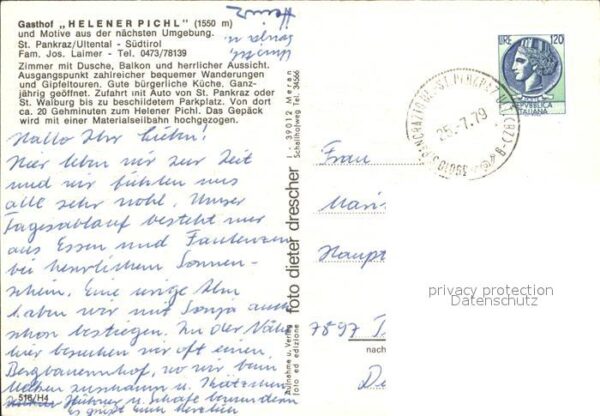 Gasthof „HELENER PICHL" (1550 m)
und Motive aus der nächsten Umgebung.
St. Pankraz/Ultental - Südtirol
Fam. Jos. Laimer - Tel. 0473/78139
Zimmer mit Dusche, Balkon und herrlicher Aussicht.
Ausgangspunkt zahlreicher bequemer Wanderungen
und Gipfeltouren. Gute bürgerliche Küche. Ganz-
jährig geöffnet. Zufahrt mit Auto von St. Pankraz oder
St. Walburg bis zu beschildetem Parkplatz. Von dort
ca. 20 Gehminuten zum Helener Pichl. Das Gepäck
wird mit einer Materialseilbahn hochgezogen.
Hallo Ihr Lieben!
Hier leben wir zur Zeit
und wir fühlen uns
alle sehr wohl. Unser
Tagesablauf besteht nur
aus Essen und Faulenzen
bei herrlichem Sonnen-
schein. Eine urige Alm
haben wir mit Sonja auch
schon bestiegen. In der Nähe
hier besuchen wir oft einen
Bergbauernhof, wo wir beim
Melken zuschauen u.
Hühner u. Schafe bewundern
Es grüßt Euch herzlich
516/H4
Heinz
Sonja u.
foto dieter drescher
I - 39012 Meran
Schallhofweg Tel. 34566
Aufnahme u. Verlag
foto ed edizione
Frau
Mari
Haupt
7897
nach
LIRE 120
REPVBBLICA
ITALIANA
25.-7.79
privacy protection
Datenschutz